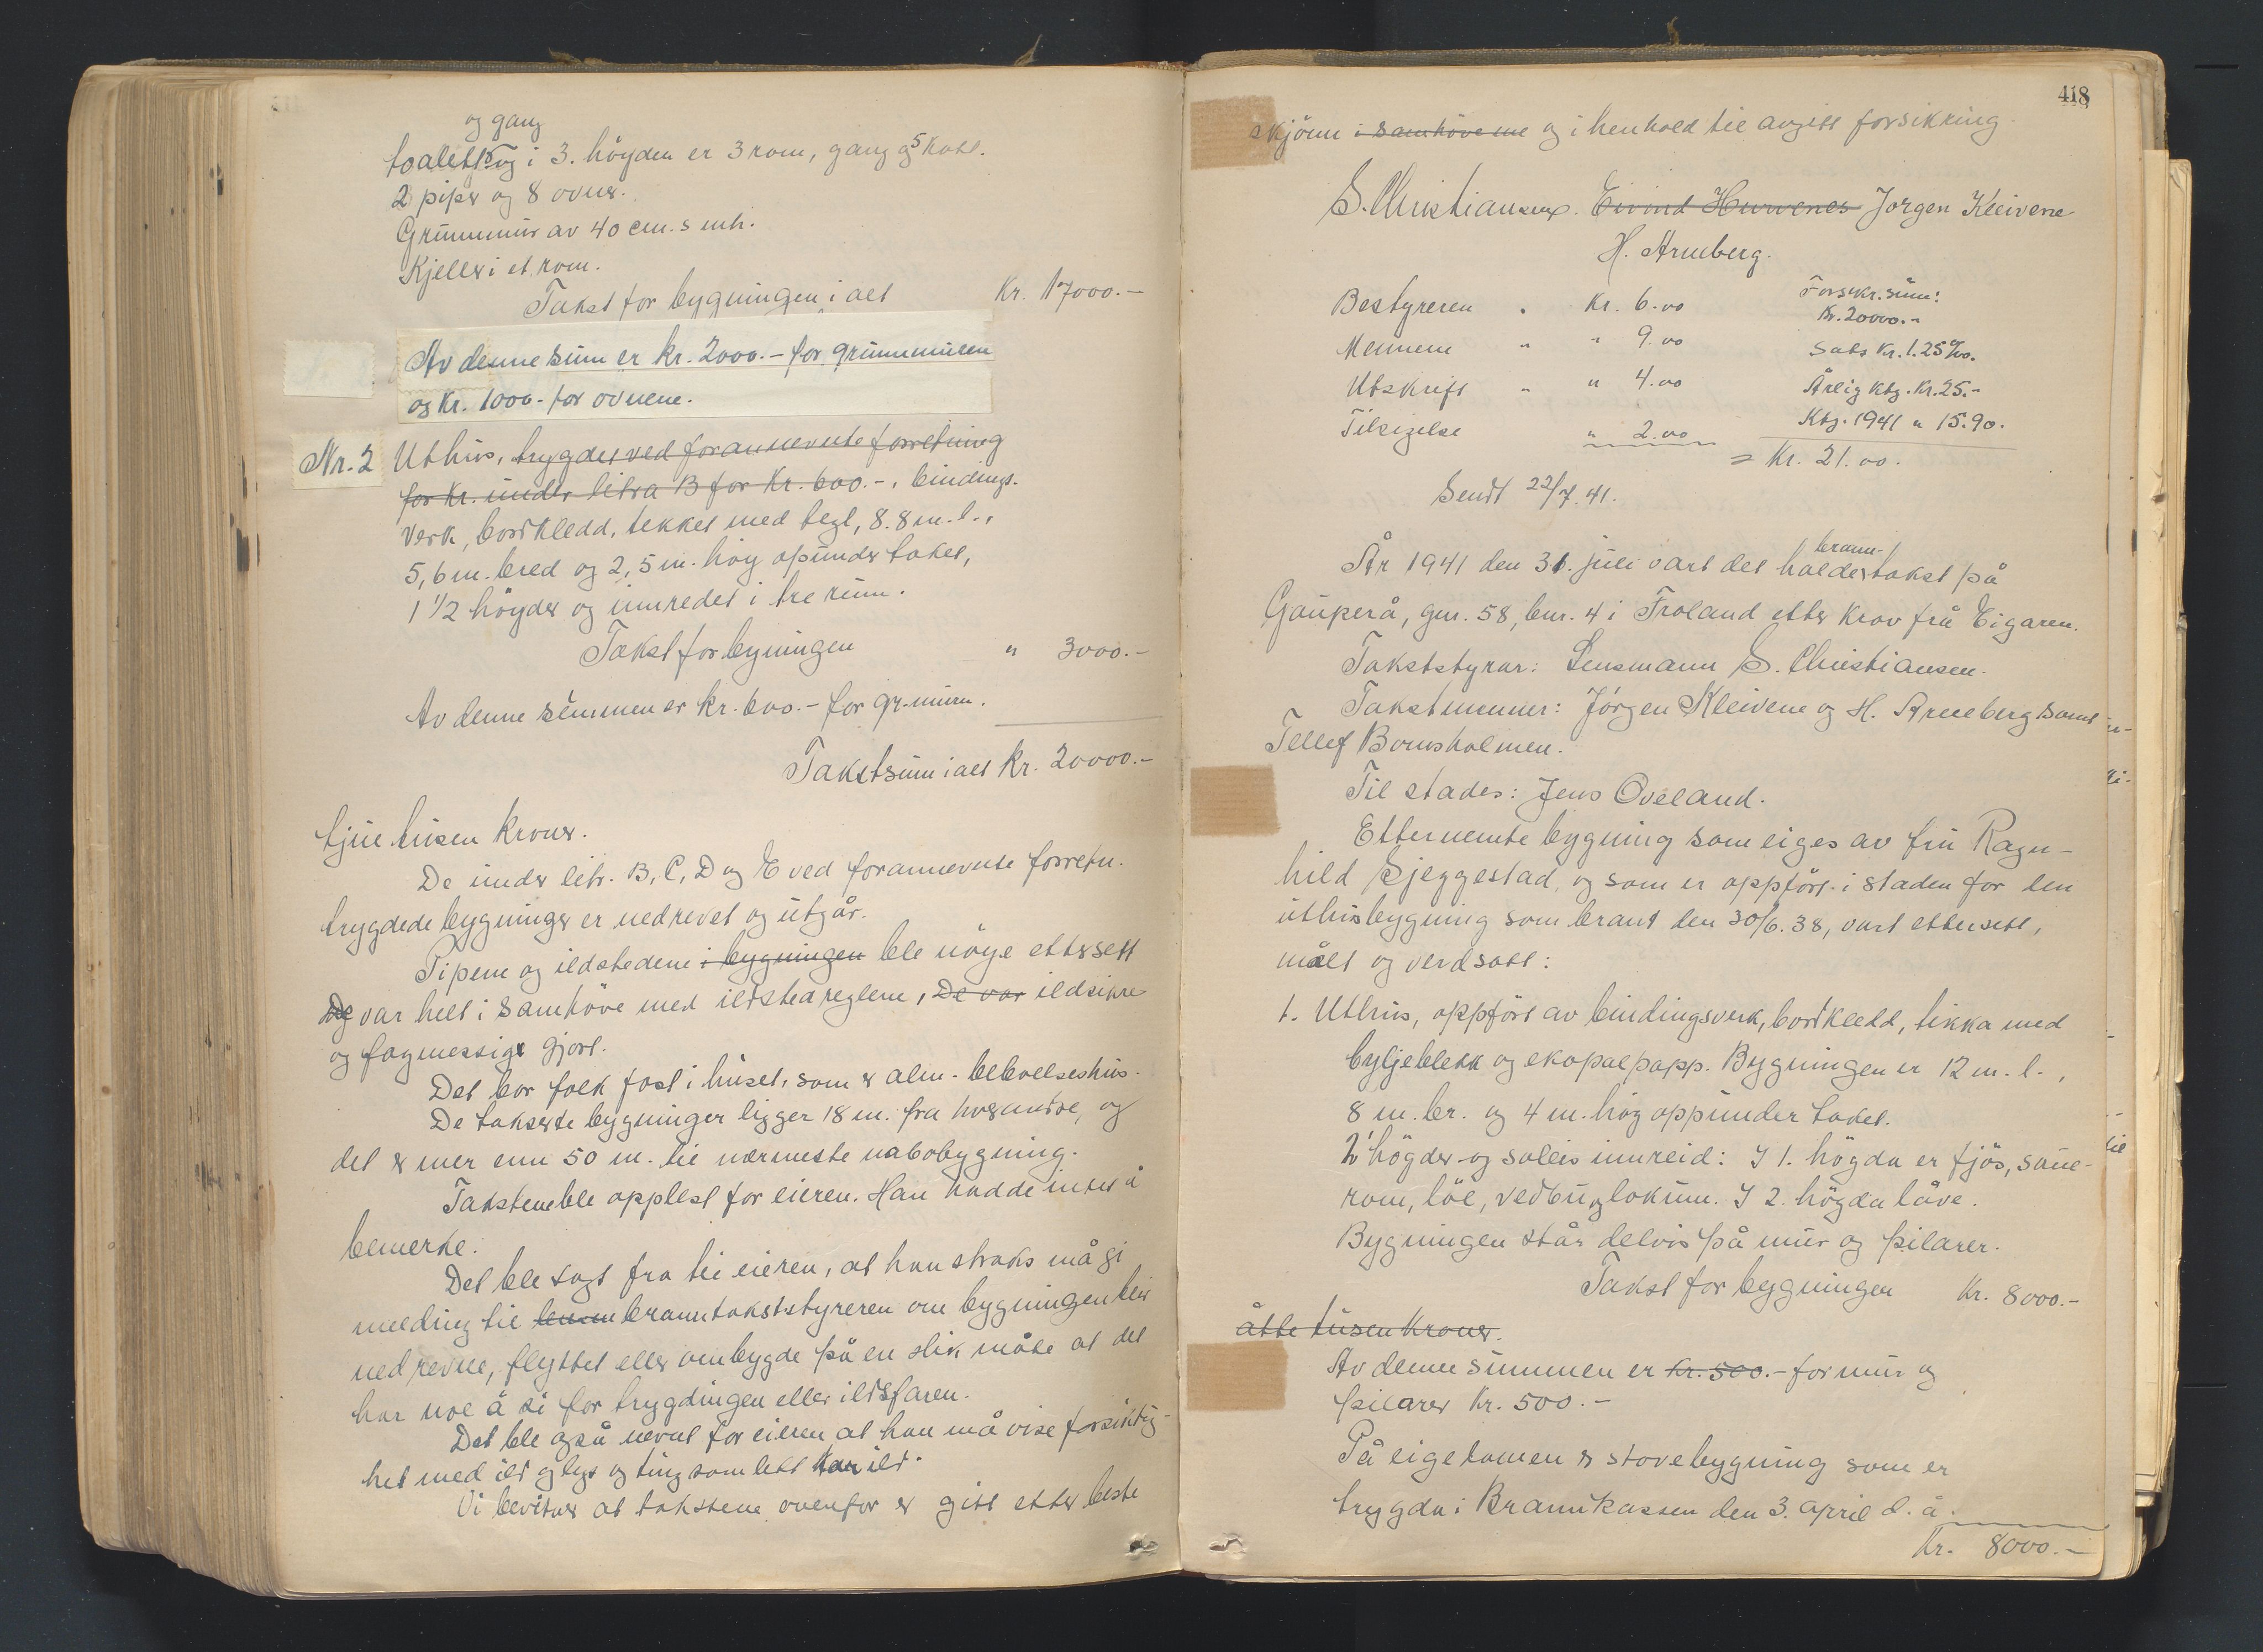 og gang
toalett og i 3. höyden er 3 rom, gang og 5 kott.
2 piper og 8 ovner.
Grunnmur av 40 cm. s mh.
Kjeller i et rom.
Takst for bygningen i alt Kr. 17000.-
Av denne sum er kr. 2000.- for grunnmuren
og Kr. 1000.- for ovnene.
Nr. 2 Uthus, trygdet ved forannevnte forretning
for Kr. under litra B for Kr. 600.-, bindings-
verk, bordkledd, tekket med tegl, 8.8 m. l.,
5,6 m. bred og 2,5 m. höy opunder taket,
1 1/2 höyder og innredet i tre rum.
Takst for bygningen " 3000.-
Av denne summen er kr. 600.- for gr.muren.
Takstsum i alt Kr. 20000.-
tjue tusen kroner.
De under litr. B, C, D og E ved forannevnte forretn.
trygdede bygninger er nedrevet og utgår.
Pipene og ildstedene i bygningen ble nöye ettersett
Og var helt i samhöve med ildstedreglene, De var ildsikre
og fagmessige gjort.
Det bor folk fast i huset, som er alm. beboelseshus.
De takserte bygninger ligger 18 m. fra hverandre, og
det er mer enn 50 m. til nærmeste nabobygning.
Taksten ble opplest for eieren. Han hadde intet å
bemerke.
Det ble sagt fra til eieren, at han straks må gi
melding til branntakststyreren om bygningen blir
ned revne, flyttet eller ombygde på en slik måte at det
har noe å si for trygdingen eller ildsfaren.
Det ble også nevnt for eieren at han må vise forsiktig-
het med ild og lys og ting som lett tar ild.
Vi bevitner at takstene ovenfor er gitt etter beste
418
skjönn i samhöve me og i henhold til avgitt forsikring.
S. Christiansen. Eivind Hurvenes Jorgen Kleivene
H. Arneberg.
Bestyreren . Kr. 6.00 Forsikr.sum:
Kr. 20000.-
Mennene " " 9.00 Sats Kr. 1.25 0/00.
Utskrift " " 4.00 Årlig ktg. Kr. 25.-
Tilsigelse " 2.00 Ktg. 1941 " 15.90.
= Kr. 21.00.
Sendt 22/7.41.
brann-
År 1941 den 31. juli vart det halde takst på
Gauperå, gnr. 58, bnr. 4 i Froland etter krav frå Eigaren.
Takststyrar: Lensmann S. Christiansen.
Takstmenner: Jörgen Kleivene og H. Arneberg samt
Tellef Bornsholmen.
Til stades: Jens Oveland.
Etternemte bygning som eiges av fru Ragn-
hild Sjeggestad, og som er oppfört i staden for den
uthusbygning som brant den 30/6.38, vart ettersett,
målt og verdsatt:
1. Uthus, oppfört av bindingsverk, bordkledd, tekka med
bylgjeblekk og ekopalpapp. Bygningen er 12 m. l.,
8 m. br. og 4 m. hög oppunder taket.
2 högder og soleis innreid: I 1. högda er fjös, saue-
rom, löe, vedbu og lokum. I 2. högda låve.
Bygningen står delvis på mur og pilarer.
Takst for bygningen Kr. 8000.-
åtte tusen kroner.
Av denne summen er kr. 500.- for mur og
pilarer Kr. 500.-
På eigetomen er stovebygning som er
trygda i Brannkassen den 3. april d. å.
Kr. 8000.-